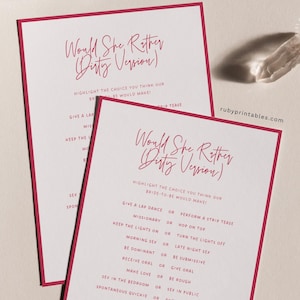 Would She Rather
(Dirty Version)
HIGHLIGHT THE CHOICE YOU THINK OUR
BRIDE-TO-BE WOULD MAKE!
GIVE A LAP DANCE
STRIP TEASE
MISSIONARY
KEEP THE LIGHTS
MORNING
BE DOM
RECEIVE
MAKE
SEX IN THE
SPONTANEOUS
rubyprintables.com
Would She Rather
(Dirty Version)
HIGHLIGHT THE CHOICE YOU THINK OUR
BRIDE-TO-BE WOULD MAKE!
GIVE A LAP DANCE OR PERFORM A STRIP TEASE
MISSIONARY OR HOP ON TOP
KEEP THE LIGHTS ON OR TURN THE LIGHTS OFF
MORNING SEX OR LATE NIGHT SEX
BE DOMINANT OR BE SUBMISSIVE
RECEIVE ORAL OR GIVE ORAL
MAKE LOVE OR BE ROUGH
SEX IN THE BEDROOM OR SEX IN PUBLIC
SPONTANEOUS QUICKIE OR